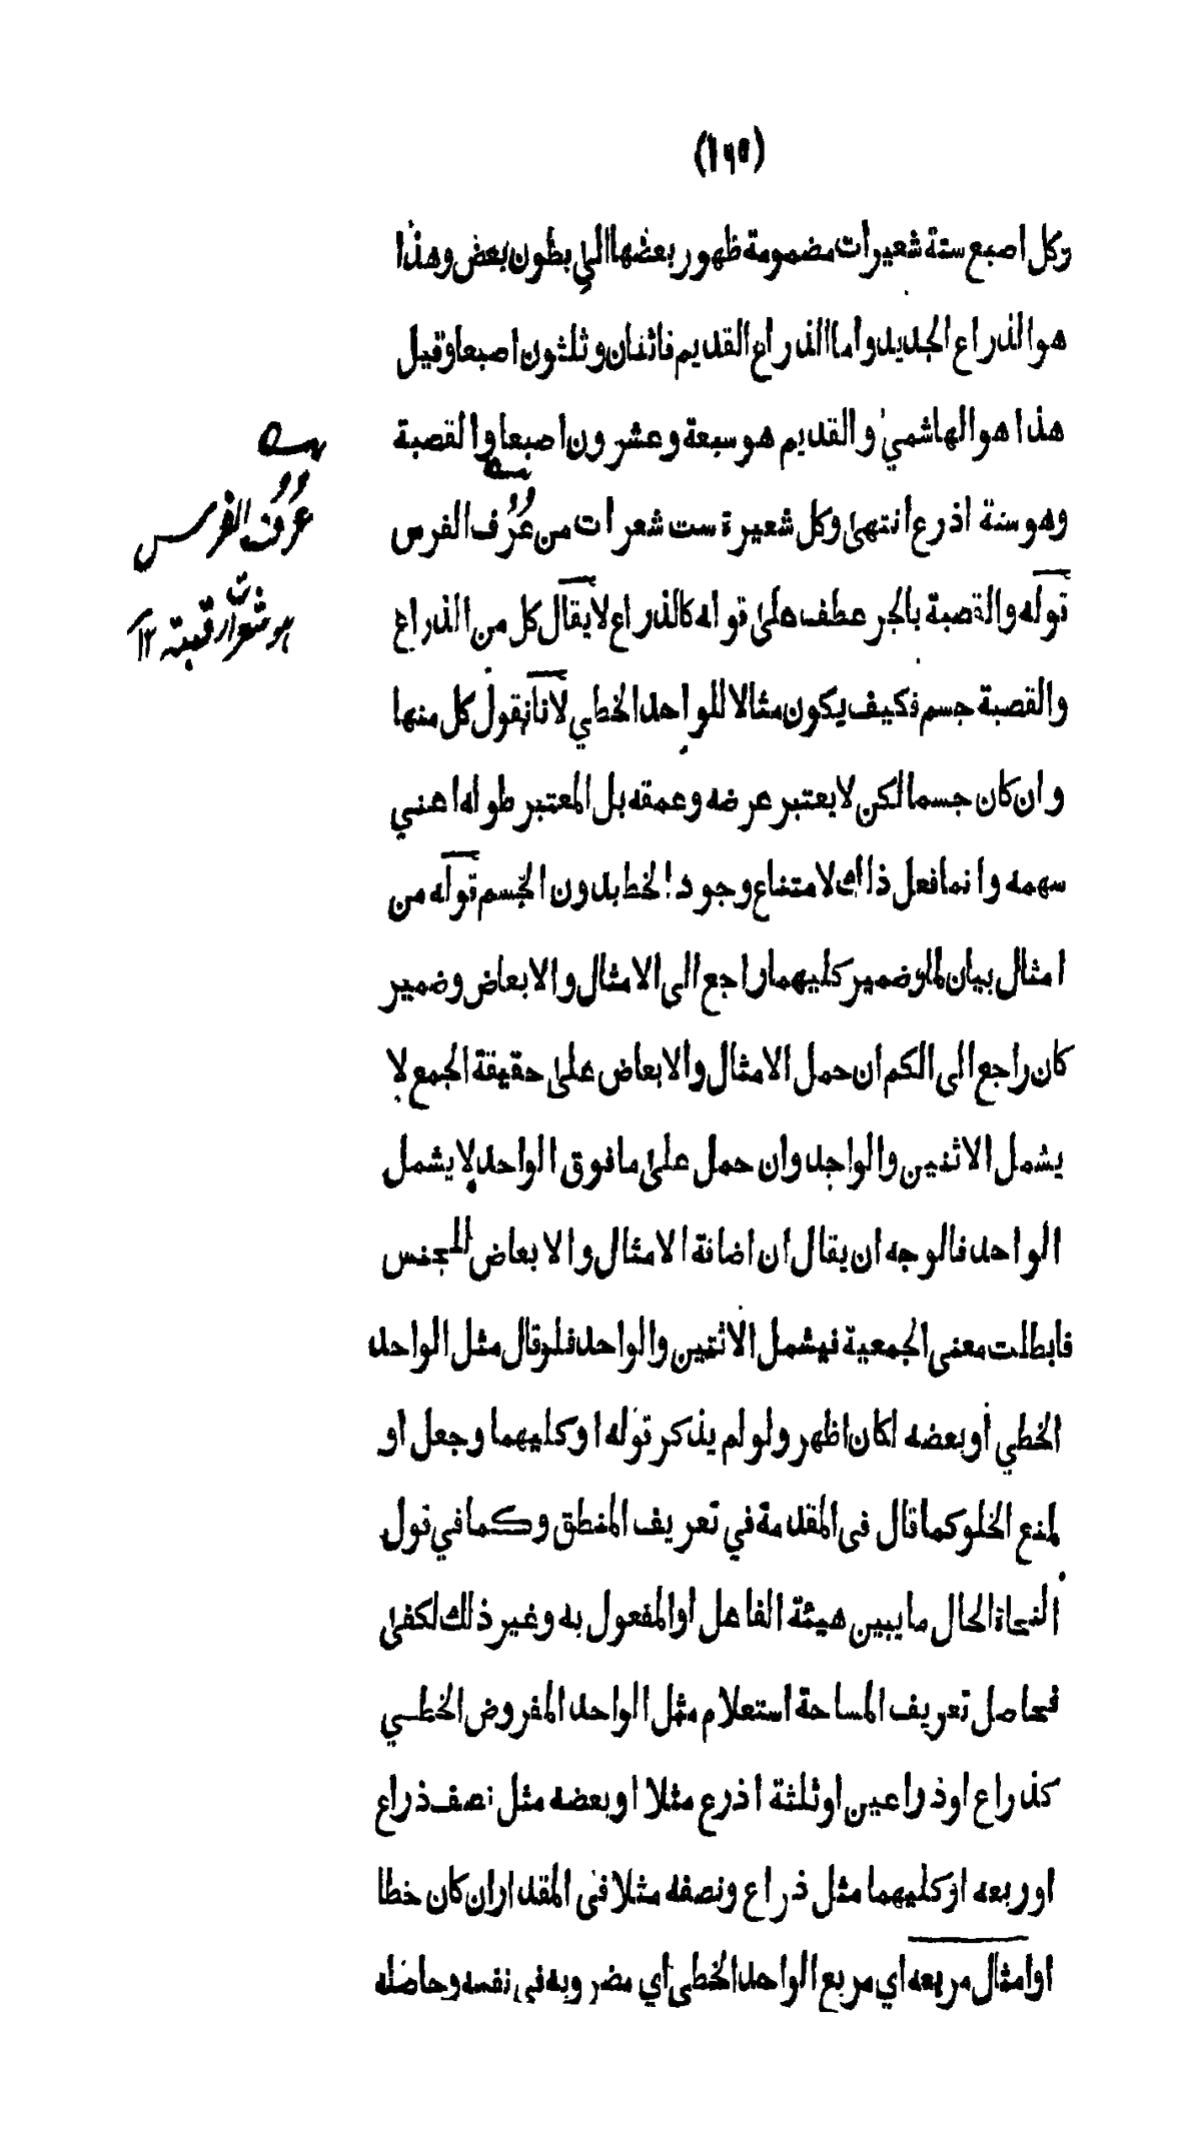 (١٦٥)
وكل اصبع ستة شعيرات مضمومة ظهور بعضها الي بطون بعض وهذا
هو الذراع الجديد واما الذراع القديم فاثنان وثلثون اصبعا وقيل
هذا هو الهاشمي والقديم هو سبعة وعشرون اصبعا والقصبة
وهو ستة اذرع انتهى وكل شعيرة ست شعرات من عُرُف الفرس
قوله والقصبة بالجر عطف على قوله كالذراع لا يقال كل من الذراع
والقصبة جسم فكيف يكون مثالا للواحد الخطي لانا نقول كل منها
وان كان جسما لكن لا يعتبر عرضه وعمقه بل المعتبر طوله اعني
سهمه وانما فعل ذالك لامتناع وجود الخط بدون الجسم قوله من
امثال بيان لما وضمير كليهما راجع الى الامثال والابعاض وضمير
كان راجع الى الكم ان حمل الامثال والابعاض على حقيقة الجمع لا
يشمل الاثنين والواحد وان حمل على ما فوق الواحد لا يشمل
الواحد فالوجه ان يقال ان اضافة الامثال والابعاض للجنس
فابطلت معنى الجمعية فيشمل الاثنين والواحد فلو قال مثل الواحد
الخطي أو بعضه لكان اظهر ولو لم يذكر قوله او كليهما وجعل او
لمنع الخلو كما قال فى المقدمة في تعريف المنطق وكما في قول
النحاة الحال ما يبين هيئة الفاعل او المفعول به وغير ذلك لكفى
فحاصل تعريف المساحة استعلام مثل الواحد المفروض الخطي
كذراع او ذراعين او ثلثة اذرع مثلا او بعضه مثل نصف ذراع
او ربعه او كليهما مثل ذراع ونصفه مثلا فى المقدار ان كان خطا
او امثال مربعه اي مربع الواحد الخطى اي مضروبه في نفسه وحاصله
عُرُف الفرس
١٢